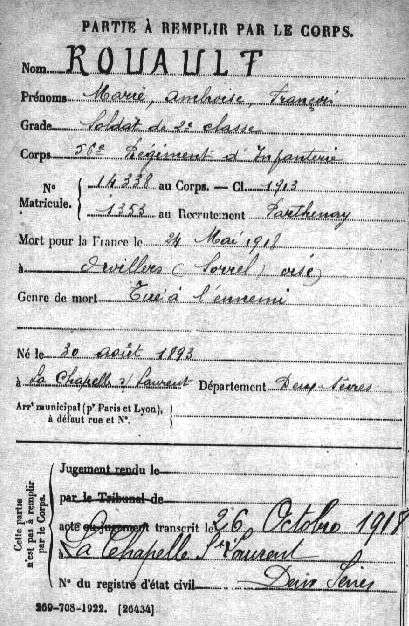 PARTIE À REMPLIR PAR LE CORPS.
Nom ROUAULT
Prénoms Marie, Ambroise, François
Grade Soldat de 2e classe
Corps Régiment d'Infanterie
N° Matricule. 14338 au Corps. — Cl. 1913
1353 au Recrutement Parthenay
Mort pour la France le 24 Mai 1918
à Orvillers (Sorrel) oise
Genre de mort Tué à l'ennemi
Né le 30 août 1893
à La Chapelle s/ Laurent Département Deux-Sèvres
Arrt municipal (pr Paris et Lyon), à défaut rue et N°.
Cette partie n'est pas à remplir par le Corps.
Jugement rendu le
par le Tribunal de
acte ou jugement transcrit le 26 Octobre 1918
à La Chapelle St Laurent
N° du registre d'état civil Deux Sèvres
269-708-1922. [26434]